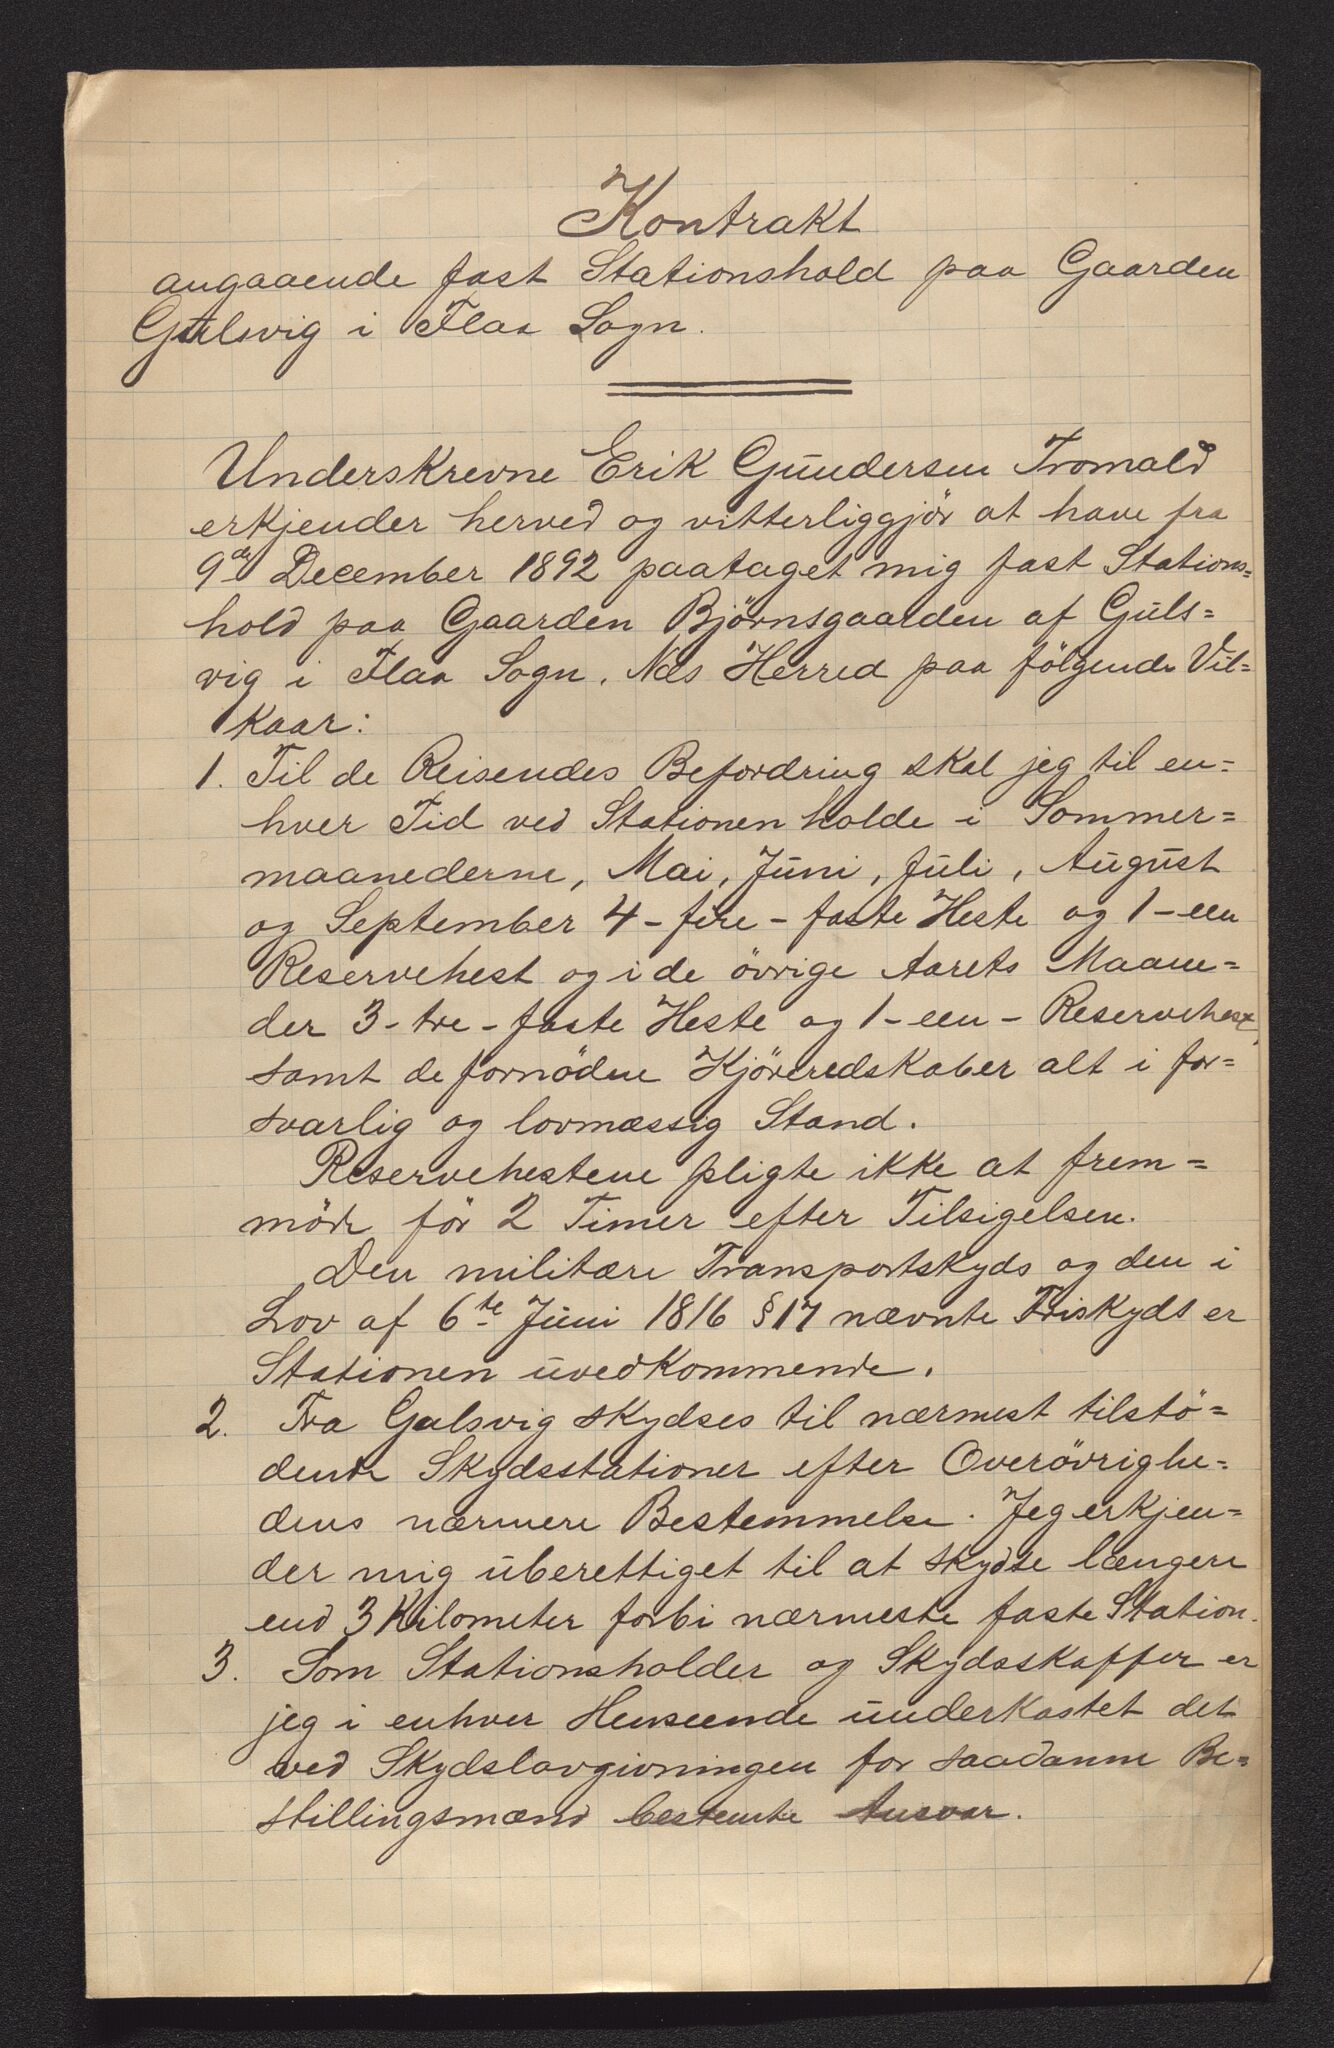 Kontrakt
angaaende fast Stationshold paa Gaarden
Gulsvig i Flaa Sogn.
Underskrevne Erik Gundersen Tromald
erkjender herved og vitterliggjör at have fra
9de December 1892 paataget mig fast Stations=
hold paa Gaarden Björnsgaarden af Guls=
vig i Flaa Sogn, Næs Herred paa fölgende Vil=
kaar:
1. Til de Reisendes Befordring skal jeg til en=
hver Tid ved Stationen holde i Sommer=
maanederne, Mai, Juni, Juli, August
og September 4 - fire - faste Heste og 1 - een
Reservehest og i de övrige Aarets Maane=
der 3 - tre - faste Heste og 1 - een - Reservehest,
samt de fornödne Kjöreredskaber alt i for=
svarlig og lovmæssig Stand.
Reservehestene pligte ikke at frem=
möde för 2 Timer efter Tilsigelsen.
Den militære Transportskyds og den i
Lov af 6te Juni 1816 § 17 nævnte Friskyds er
Stationen uvedkommende.
2. Fra Gulsvig skydses til nærmest tilstö=
dende Skydsstationer efter Overövrighe=
dens nærmere Bestemmelse. Jeg erkjen=
der mig uberettiget til at skydse længere
end 3 Kilometer forbi nærmeste faste Station.
3. Som Stationsholder og Skydsskaffer er
jeg i enhver Henseende underkastet det
ved Skydslovgivningen for saadanne Be=
stillingsmænd bestemte Ansvar.